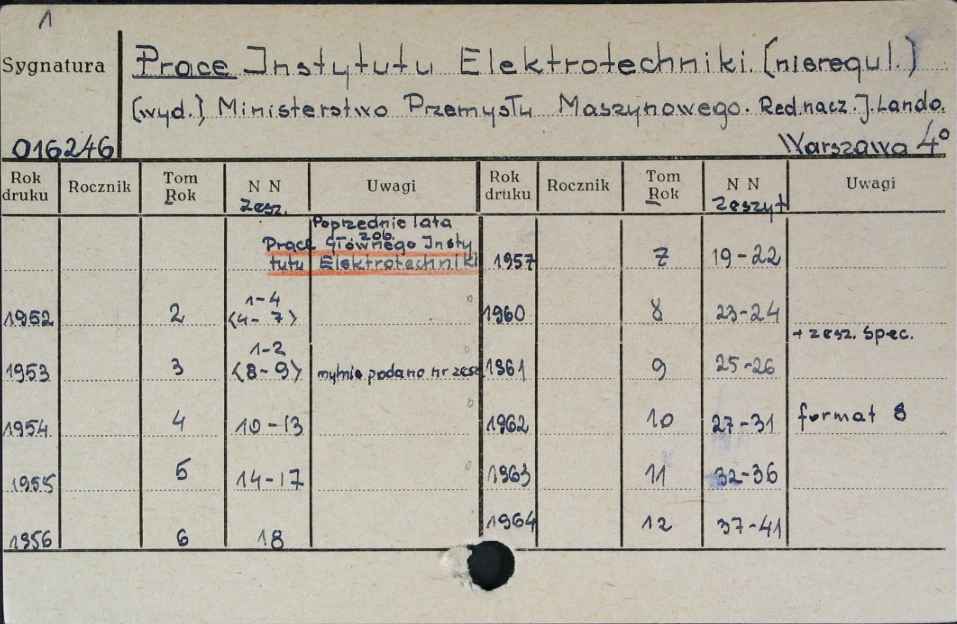 1
Sygnatura
Prace Instytutu Elektrotechniki. (nieregul.)
(wyd.) Ministerstwo Przemysłu Maszynowego. Red. nacz. J. Lando.
016246
Warszawa 4°
Rok druku Rocznik Tom Rok N N zesz. Uwagi Rok druku Rocznik Tom Rok N N zeszyt Uwagi
Poprzednie lata
- zob.
Prace Głównego Insty
tutu Elektrotechniki 1957 7 19-22
1952 2 1-4 <4-7> 1960 8 23-24
+ zesz. spec.
1953 3 1-2 <8-9> mylnie podano nr zesz 1961 9 25-26
1954 4 10-13 1962 10 27-31 format 8
1955 5 14-17 1963 11 32-36
1956 6 18 1964 12 37-41